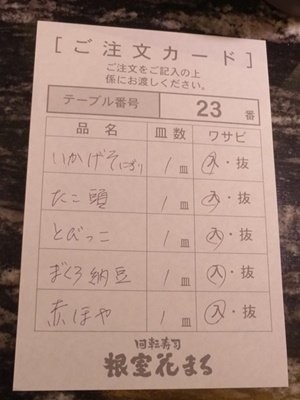 [ご注文カード]
ご注文をご記入の上
係にお渡しください。
テーブル番号 23 番
品名 皿数 ワサビ
いかげそにぎり 1皿 入・抜
たこ頭 1皿 入・抜
とびっこ 1皿 入・抜
まぐろ納豆 1皿 入・抜
赤ほや 1皿 入・抜
回転寿司
根室花まる